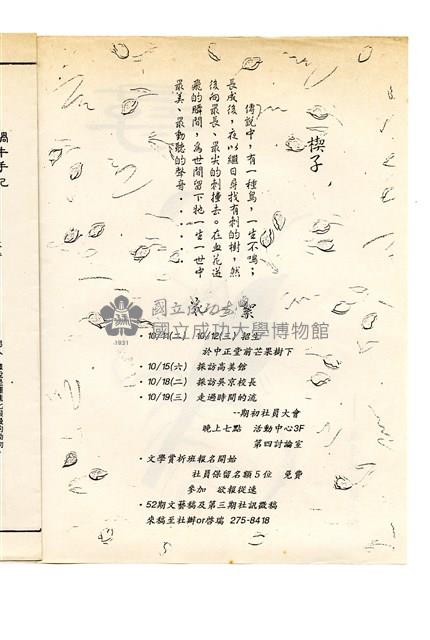 楔子
傳說中，有一種鳥，一生不鳴；
長成後，夜以繼日尋找有刺的樹，然
後向最長、最尖的刺撞去。在血花迸
飛的瞬間，為世間留下牠一生一世中
最美、最動聽的聲音‥‥‥‥
絮
國立成功大學博物館
1931
・10/11(二) 10/12(三) 招生
於中正堂前芒果樹下
・10/15(六) 採訪高美館
・10/18(二) 採訪吳京校長
・10/19(三) 走過時間的流
--期初社員大會
晚上七點 活動中心3F
第四討論室
・文學賞析班報名開始
社員保留名額5位 免費
參加 欲報從速
・52期文藝稿及第三期社訊徵稿
來稿至社辦or啓瑞 275-8418
蝸牛手記